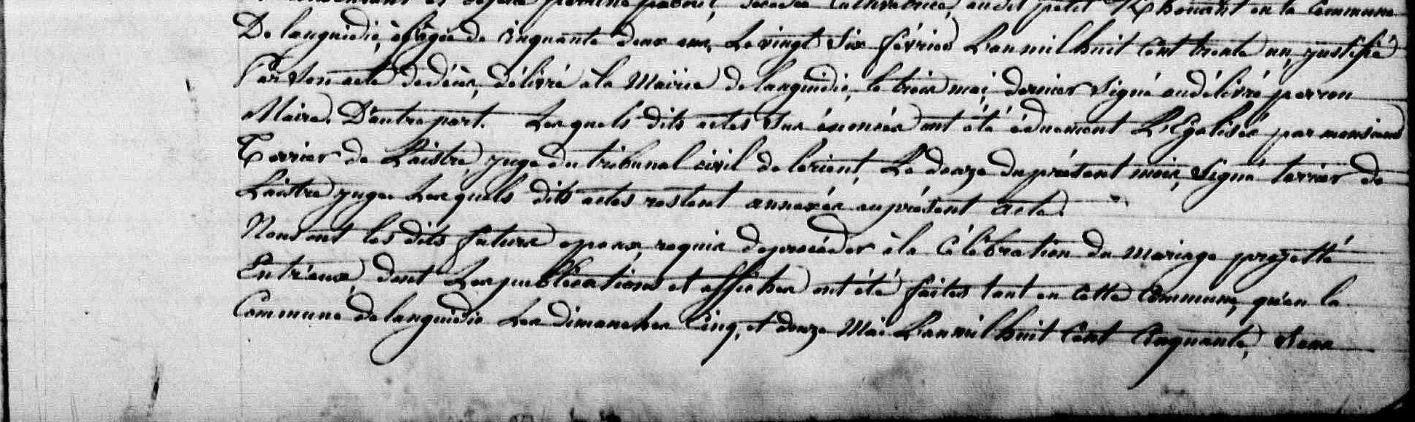 décédée cultivatrice, audit petit Khouant en la Commune
De languidic, âgée de cinquante deux ans, Le vingt Six février L'an mil huit cent trente un, justifié
Par son acte de décès, délivré à la Mairie de languidic, le trois mai dernier Signé au délivré perron
Maire. D'autre part. Lesquels dits actes Sus énoncés ont été dûment Légalisés par monsieur
Terrier de Laistre, juge du tribunal civil de lorient, Le douze du présent mois, Signé terrier de
Laistre juge. Lesquels dits actes restent annexés au présent acte.
Nous ont les dits futurs époux, requis de procéder à la Célébration du Mariage projetté
Entr'eux, dont Les publications et affiches ont été faites tant en cette commune, qu'en la
Commune de languidic Les dimanches Cinq, et douze Mai L'an mil huit Cent Cinquante, Sans